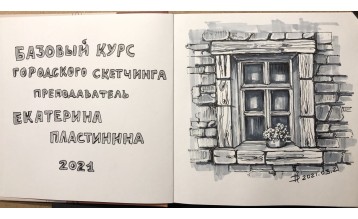 БАЗОВЫЙ КУРС
ГОРОДСКОГО СКЕТЧИНГА
ПРЕПОДАВАТЕЛЬ
ЕКАТЕРИНА
ПЛАСТИНИНА
2021